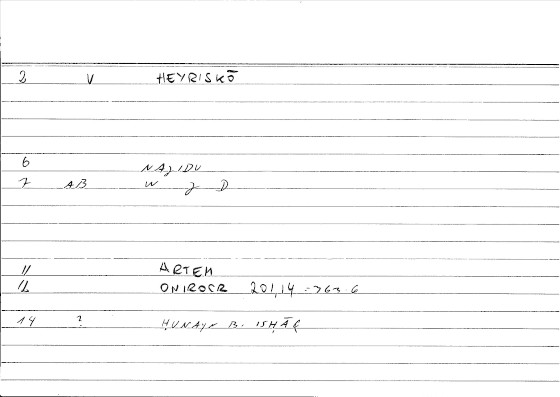 2 V HEYRISKŌ
6 NAJIDU
7 AB W J D
11 ARTEM
12 ONIROCR 201,14
14 ? ḤUNAYN B. ISḤĀQ